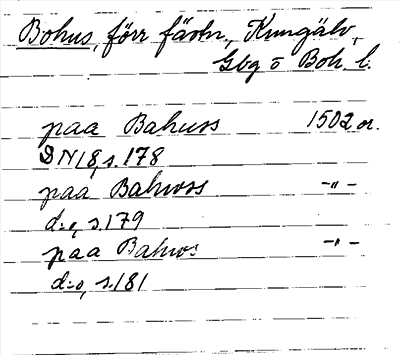 Bohus, förr fästn., Kungälv,
Gbg o Boh. l.
paa Bahuss 1502 or.
DN 18, s. 178
paa Bahwss -"-
d:o, s. 179
paa Bahws -"-
d:o, s. 181